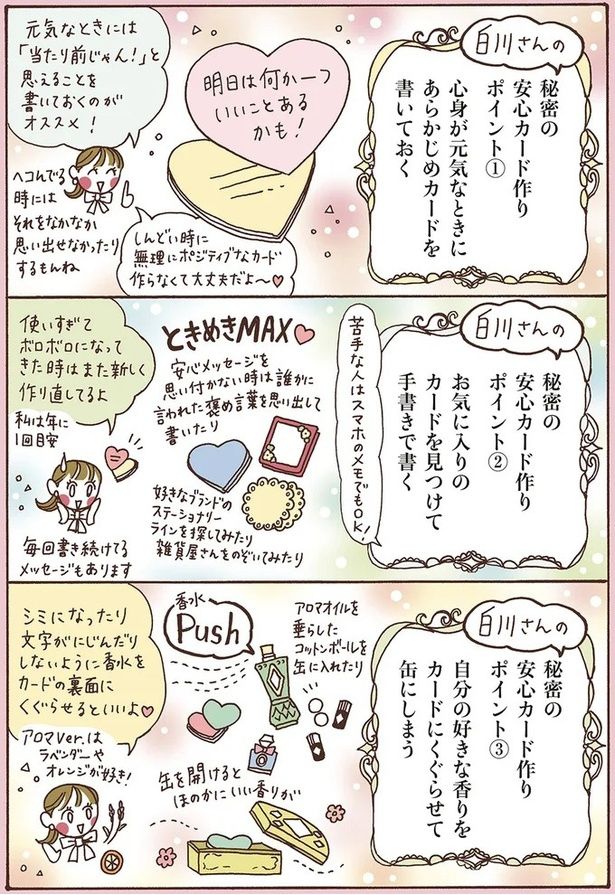 白川さんの
秘密の
安心カード作り
ポイント①
心身が元気なときに
あらかじめカードを
書いておく
明日は何か一つ
いいことある
かも!
元気なときには
「当たり前じゃん!」と
思えることを
書いておくのが
オススメ!
ヘコんでる
時には
それをなかなか
思い出せなかったり
するもんね
しんどい時に
無理にポジティブなカード
作らなくて大丈夫だよ〜♡
白川さんの
秘密の
安心カード作り
ポイント②
お気に入りの
カードを見つけて
手書きで書く
苦手な人はスマホのメモでもOK!
ときめきMAX♡
安心メッセージを
思い付かない時は誰かに
言われた褒め言葉を思い出して
書いたり
好きなブランドの
ステーショナリー
ラインを探してみたり
雑貨屋さんをのぞいてみたり
使いすぎて
ボロボロになって
きた時はまた新しく
作り直してるよ
私は年に
1回目安
毎回書き続けてる
メッセージもあります
白川さんの
秘密の
安心カード作り
ポイント③
自分の好きな香りを
カードにくぐらせて
缶にしまう
アロマオイルを
垂らした
コットンボールを
缶に入れたり
香水
Push
シミになったり
文字がにじんだり
しないように香水を
カードの裏面に
くぐらせるといいよ♡
アロマver.は
ラベンダーや
オレンジが好き!
缶を開けると
ほのかにいい香りが